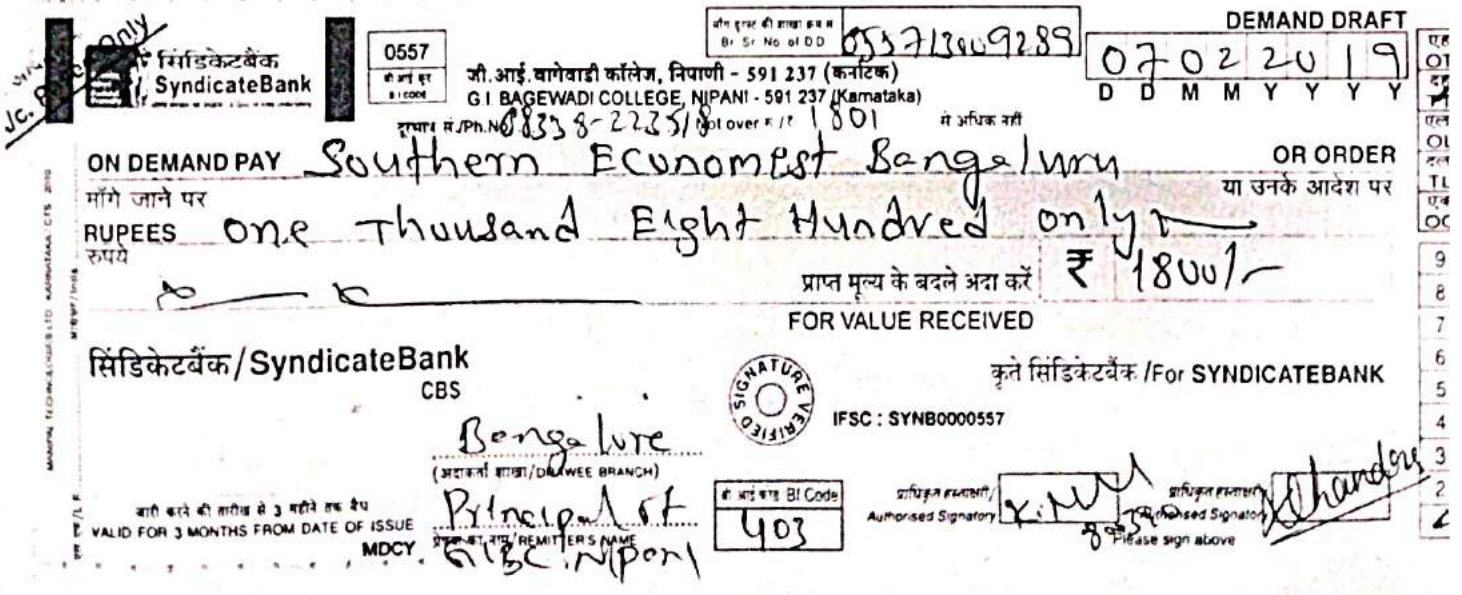 DEMAND DRAFT
सिंडिकेटबैंक
SyndicateBank
0557
BI CODE
Br Sr No of DD
0 7 0 2 2 0 1 9
D D M M Y Y Y Y
जी.आई.बागेवाडी कॉलेज, निपाणी - 591 237 (कर्नाटक)
G.I. BAGEWADI COLLEGE, NIPANI - 591 237 (Karnataka)
Ph.No 08338-223518 Not over ₹ 1801 से अधिक नहीं
ON DEMAND PAY Southern Economist Bangaluru OR ORDER
माँगे जाने पर या उनके आदेश पर
RUPEES One Thousand Eight Hundred only
रुपये
प्राप्त मूल्य के बदले अदा करें ₹ 1800/-
FOR VALUE RECEIVED
सिंडिकेटबैंक/SyndicateBank
CBS
SIGNATURE VERIFIED
कृते सिंडिकेटबैंक/For SYNDICATEBANK
IFSC : SYNB0000557
Bengalure
(अदाकर्ता शाखा/DRAWEE BRANCH)
जारी करने की तारीख से 3 महीने तक वैध
VALID FOR 3 MONTHS FROM DATE OF ISSUE
Principal of
REMITTER'S NAME
MDCY
GIBC. Nipani
BI Code
403
प्राधिकृत हस्ताक्षरी/
Authorised Signatory
प्राधिकृत हस्ताक्षरी
Authorised Signatory
Please sign above
9
8
7
6
5
4
3
2